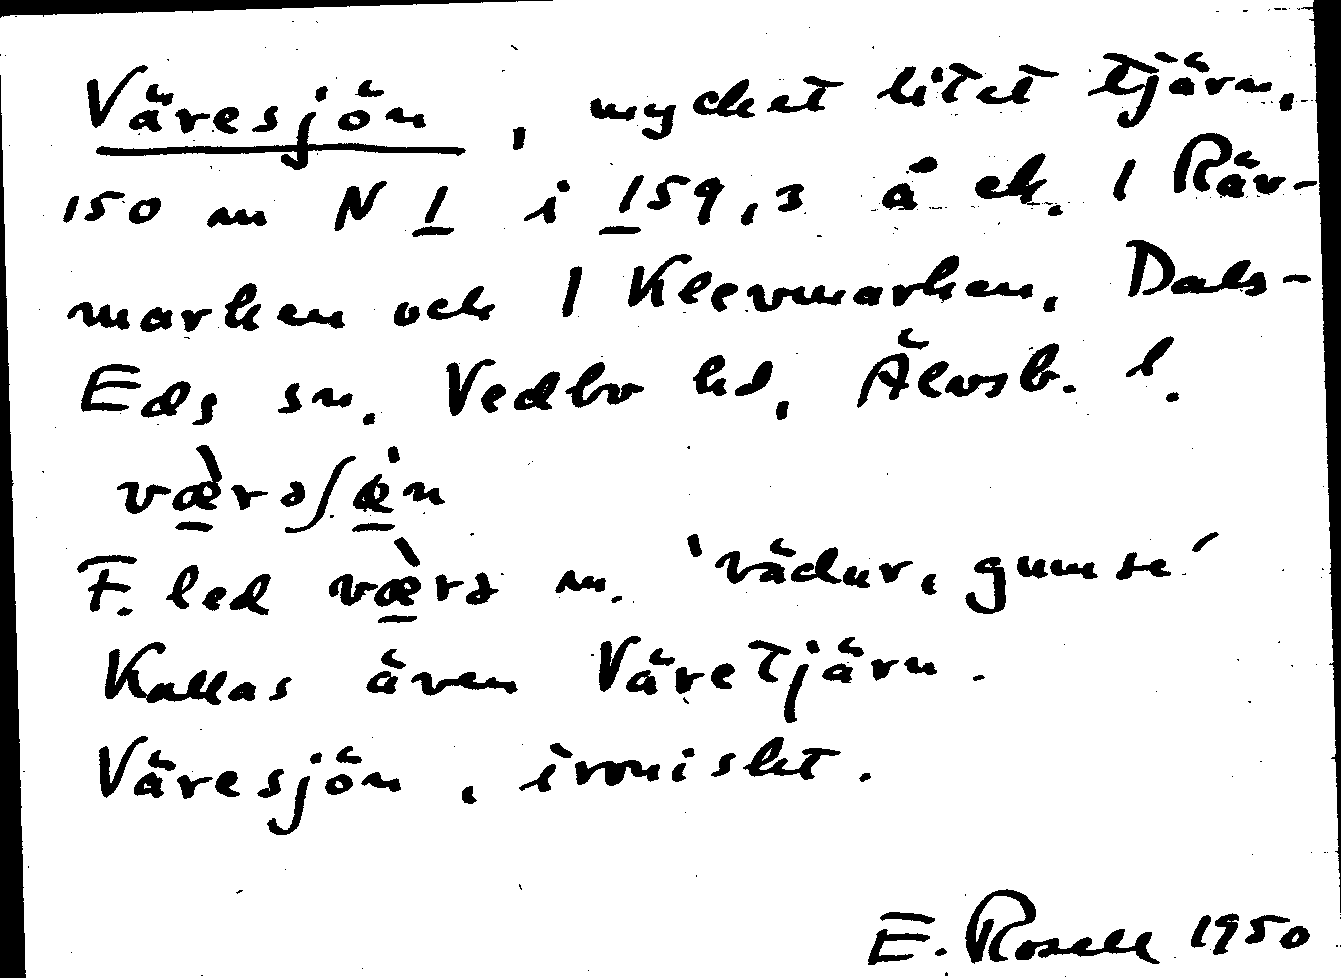 Väresjön, mycket litet tjärn,
150 m N 1 i 159,3 å ek. 1 Räv-
marken och 1 Klevmarken, Dals-
Eds sn. Vedbo hd, Älvsb. l.
væ̀rəʃæ̇n
F. led væ̀rə m. 'vädur, gumse'
Kallas även Väretjärn.
Väresjön, ironiskt.
E. Rosell 1950